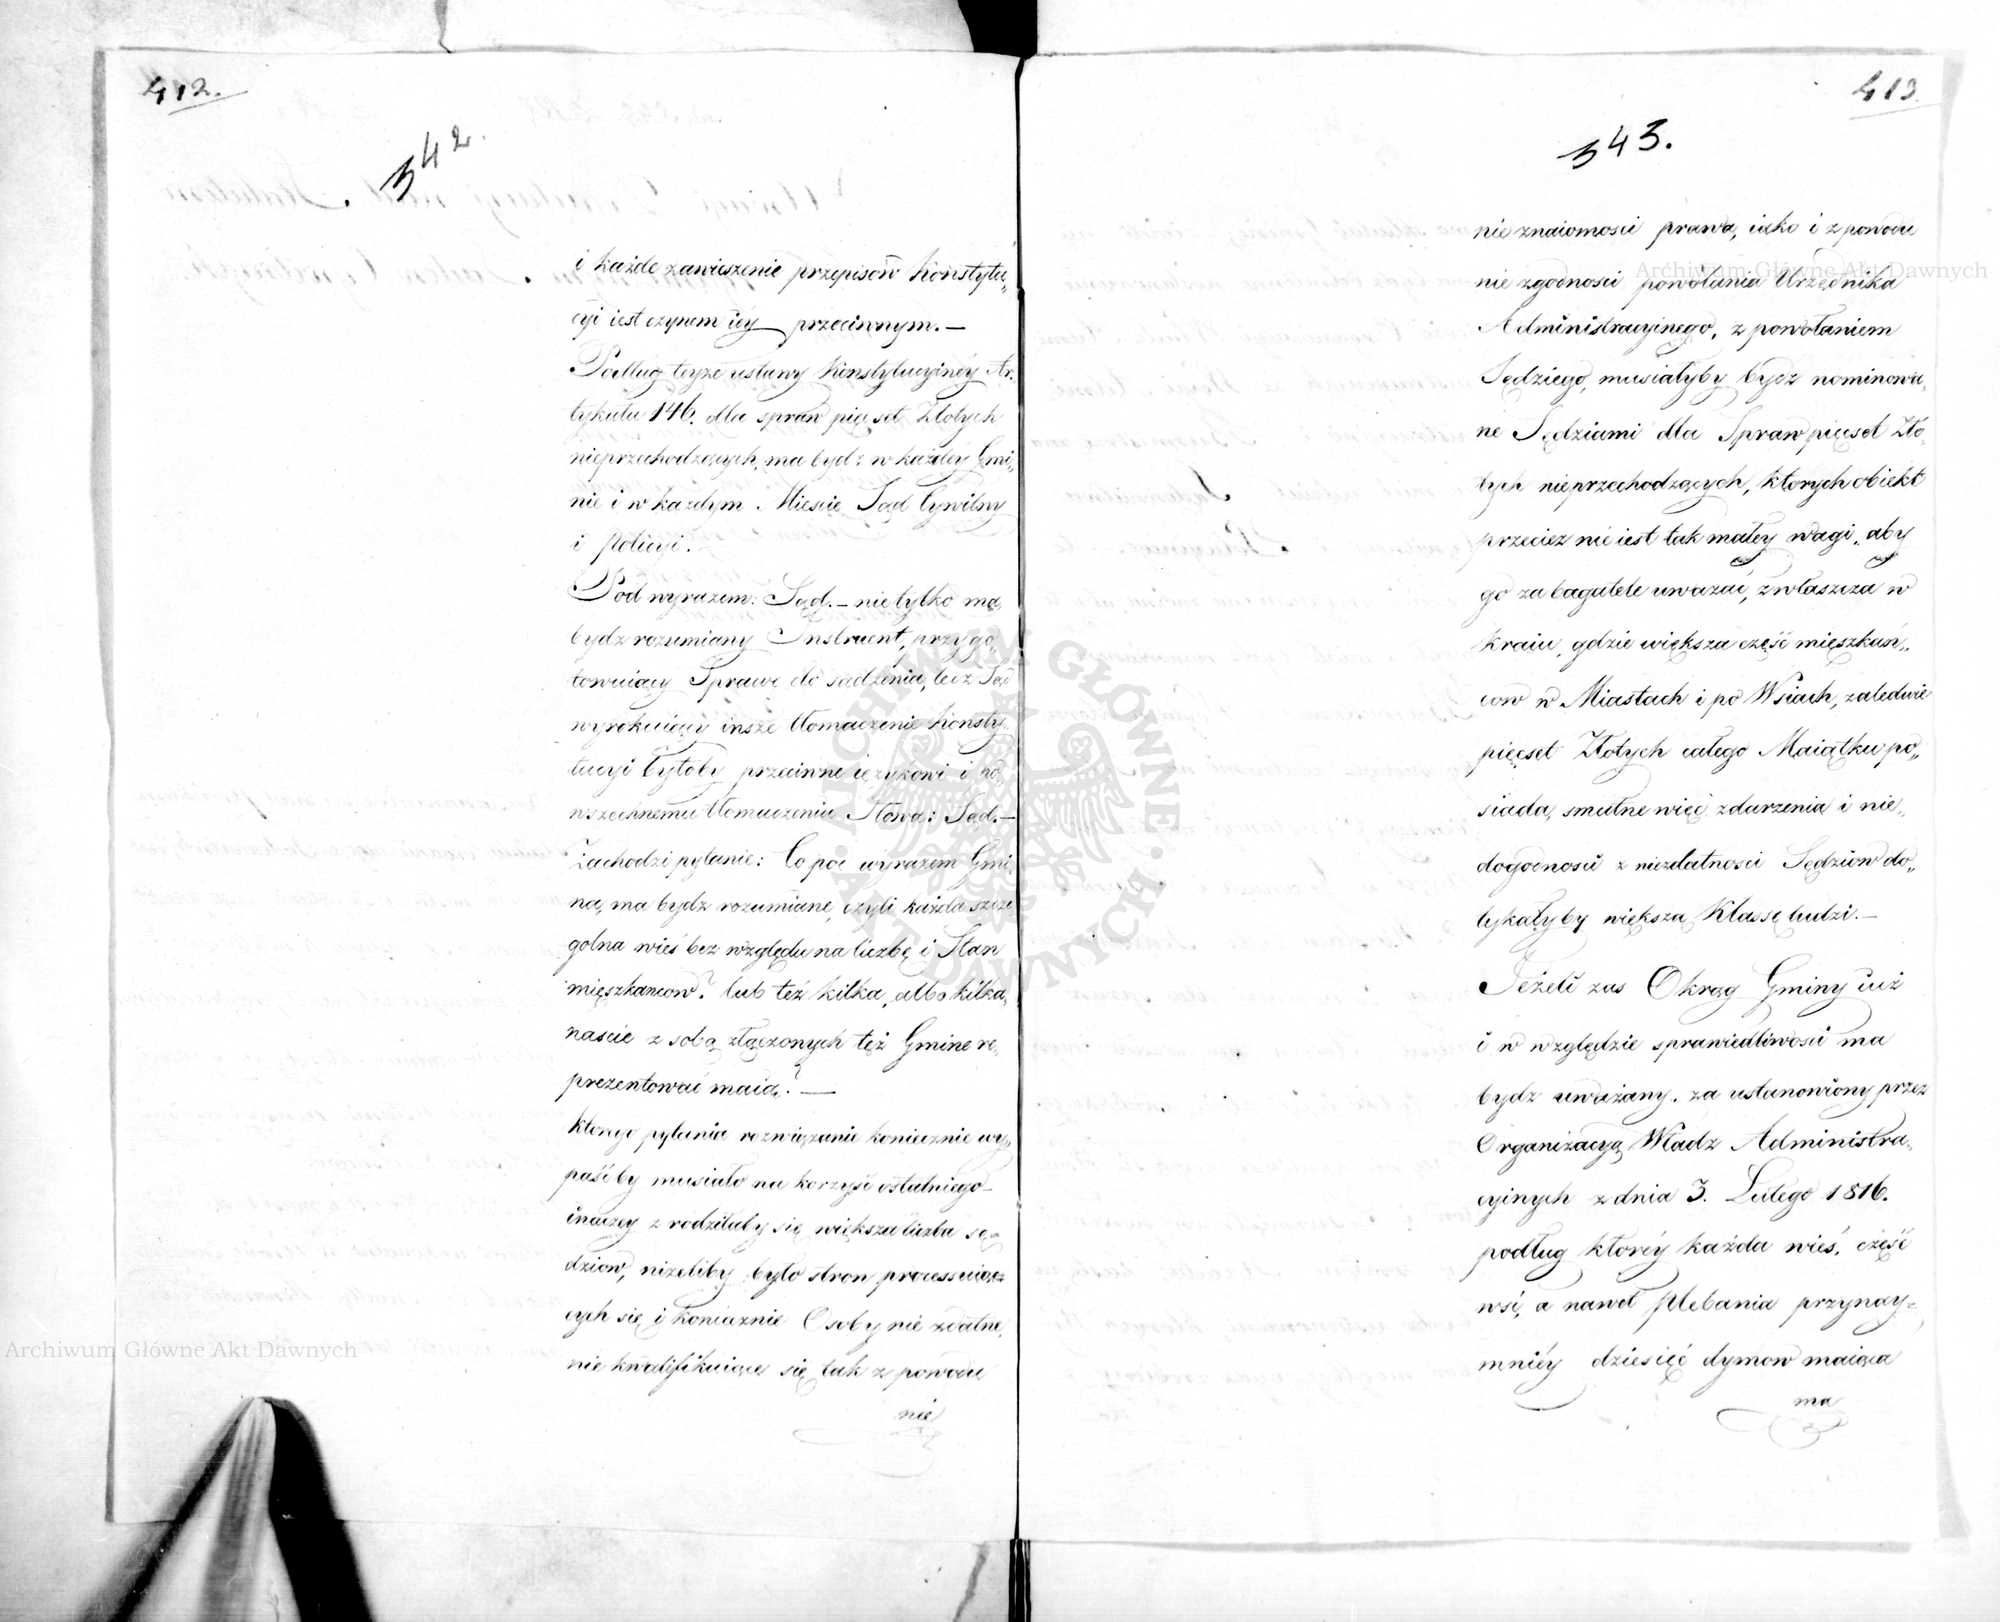 412.
342.
i każde zawieszenie przepisow Konstytu„
cyi iest czynem iey przeciwnym.—
Podług teyże ustawy Konstytucyiney Ar„
tykułu 146. dla spraw pięset Złotych
nieprzechodzących, ma bydz w każdey Gmi„
nie i w kazdym Miescie Sąd Cywilny
i Policyi.
Pod wyrazem: Sąd.— nietylko ma
bydz rozumiany Instruent, przygo„
towuiący Sprawę do sądzenia, lecz Sąd
wyrokuiący insze tłomaczenie Konsty„
tucyi byłoby przeciwne ięzykowi i po„
wszechnemu tłomaczeniu Słowa: Sąd.—
Zachodzi pytanie: Co pod wyrazem Gmi„
na, ma bydz rozumiane, czyli każda szcze„
golna wieś bez względu na liczbę i Stan
mięszkancow? lub też kilka, albo kilka„
nascie z sobą złączonych też Gmine re„
prezentować maią? —
Ktorego pytania rozwiązanie koniecznie wy„
paśćby musiało na korzyść ostatniego—
inaczey zrodziłaby się większa liczba sę„
dziow, niżeliby było stron processuiąc„
cych się i koniecznie Osoby nie zdatne,
nie kwalifikuiące się tak z powodu
nie
413.
343.
nieznaiomosci prawa, iako i z powodu
nie zgodnosci powołania Urzędnika
Administracyinego, z powołaniem
Sędziego, musiałyby bydz nominowa„
ne Sędziami dla Spraw pięset Zło„
tych nieprzechodzących, ktorych obiekt
przeciez nie iest tak małey wagi, aby
go za bagatele uwazać, zwłaszcza w
Kraiu, gdzie większa część mięszkań„
cow w Miastach i po Wsiach, zaledwie
pięset Złotych całego Maiątku po„
siada, smutne więc zdarzenia i nie„
dogodnosci z niezdatnosci Sędziow do„
tykałyby większą Klassę ludzi.—
Jeżeli zas Okrąg Gminy iuż
i w względzie sprawiedliwosci ma
bydz uważany za ustanowiony przez
Organizacyą Władz Administra„
cyinych z dnia 3. Lutego 1816.
podług ktorey każda wieś, część
wsi, a nawet Plebania przynay„
mniéy dziesięć dymow maiąca
ma
Archiwum Główne Akt Dawnych
Archiwum Główne Akt Dawnych
ARCHIWUM GŁÓWNE AKT DAWNYCH